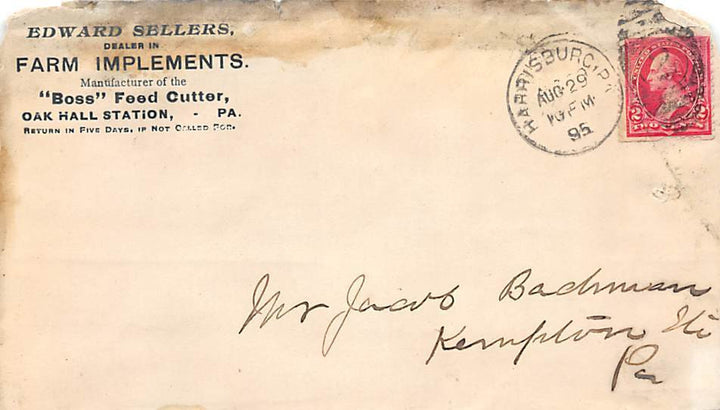 EDWARD SELLERS,
DEALER IN
FARM IMPLEMENTS.
Manufacturer of the
"Boss" Feed Cutter,
OAK HALL STATION, - PA.
RETURN IN FIVE DAYS, IF NOT CALLED FOR.
HARRISBURG, PA.
AUG 29
10 PM
95
2 TWO CENTS 2
Mr Jacob Bachman
Kempton
Pa